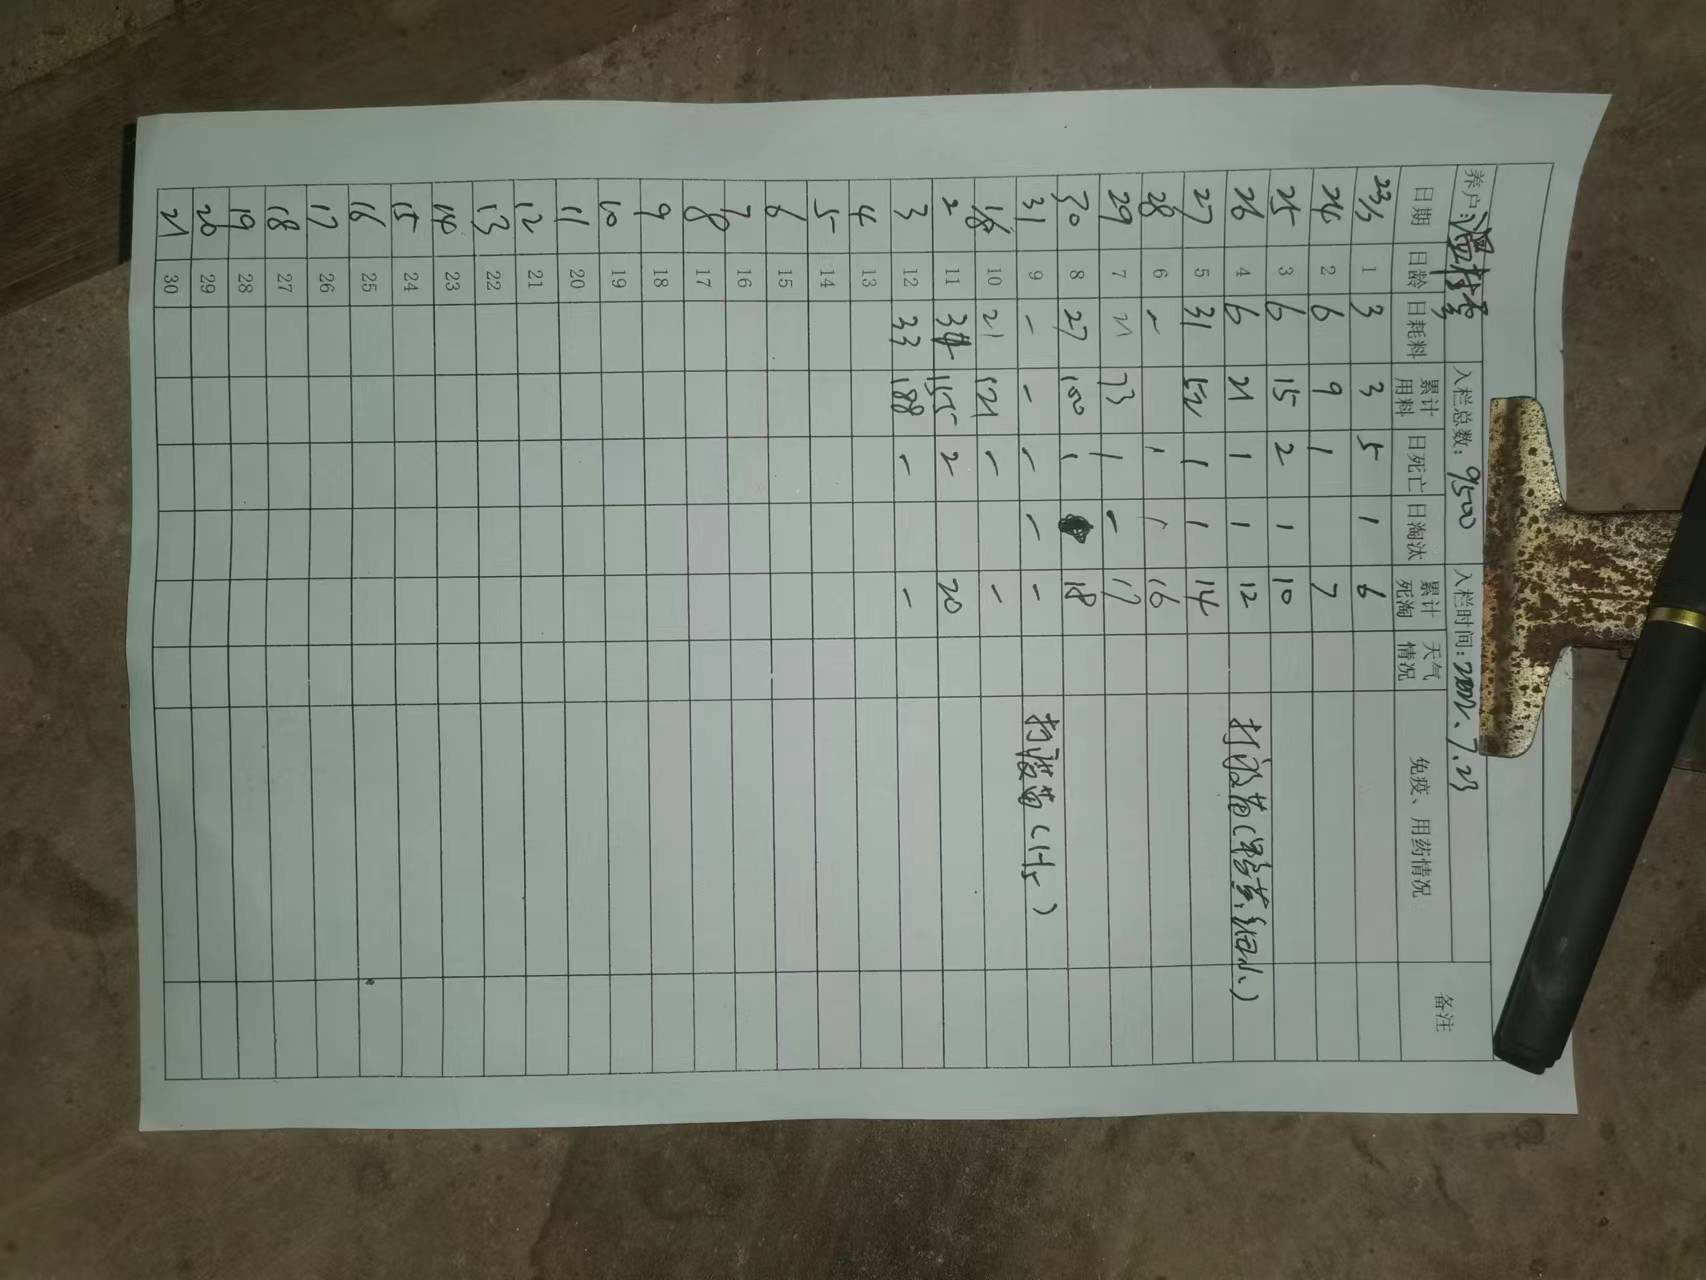 养户:温 入栏总数:9500 入栏时间:2022.7.23
日期 日龄 日耗料 累计用料 日死亡 日淘汰 累计死淘 天气情况 免疫、用药情况 备注
23/7 1 3 3 5 1 6
24 2 6 9 1 7
25 3 6 15 2 1 10
26 4 6 21 1 1 12 打疫苗(
27 5 31 52 1 1 14
28 6 - 1 1 16
29 7 21 73 1 - 17
30 8 27 100 1 18
31 9 - - - - - 打疫苗(H5)
1/8 10 21 121 - -
2 11 34 155 2 20
3 12 33 188 - -
4 13
5 14
6 15
7 16
8 17
9 18
10 19
11 20
12 21
13 22
14 23
15 24
16 25
17 26
18 27
19 28
20 29
21 30